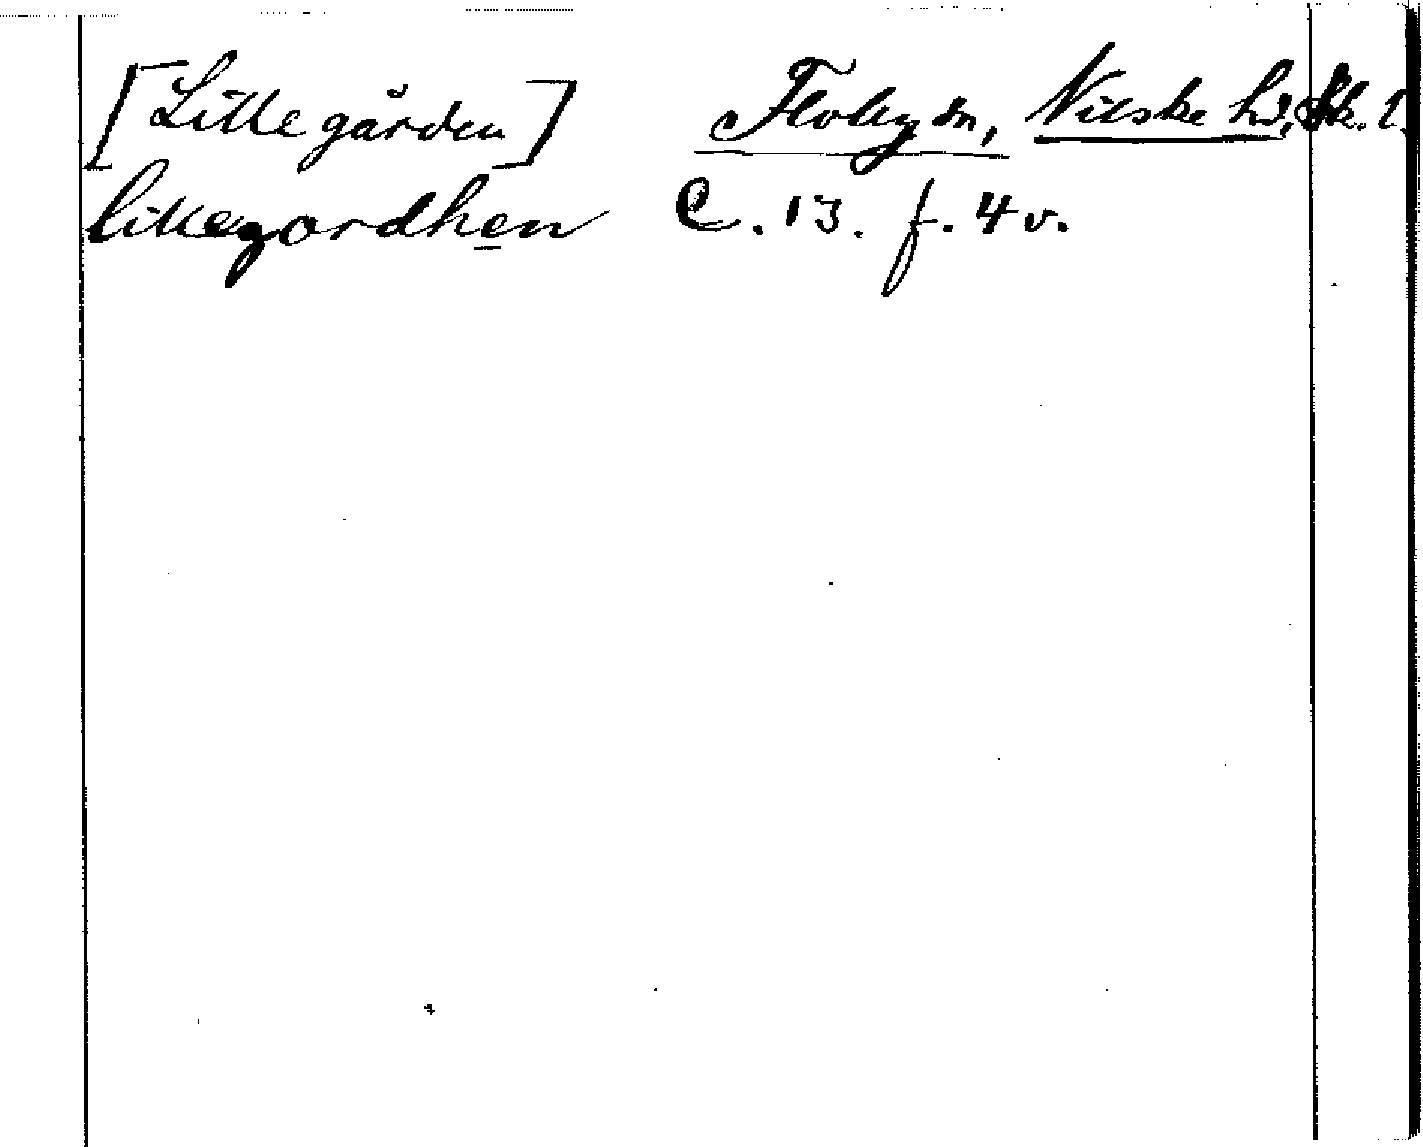 [Lille gården] Floby sn, Vilske hd, Sk. l.
lillegordhen C. 13. f. 4 v.